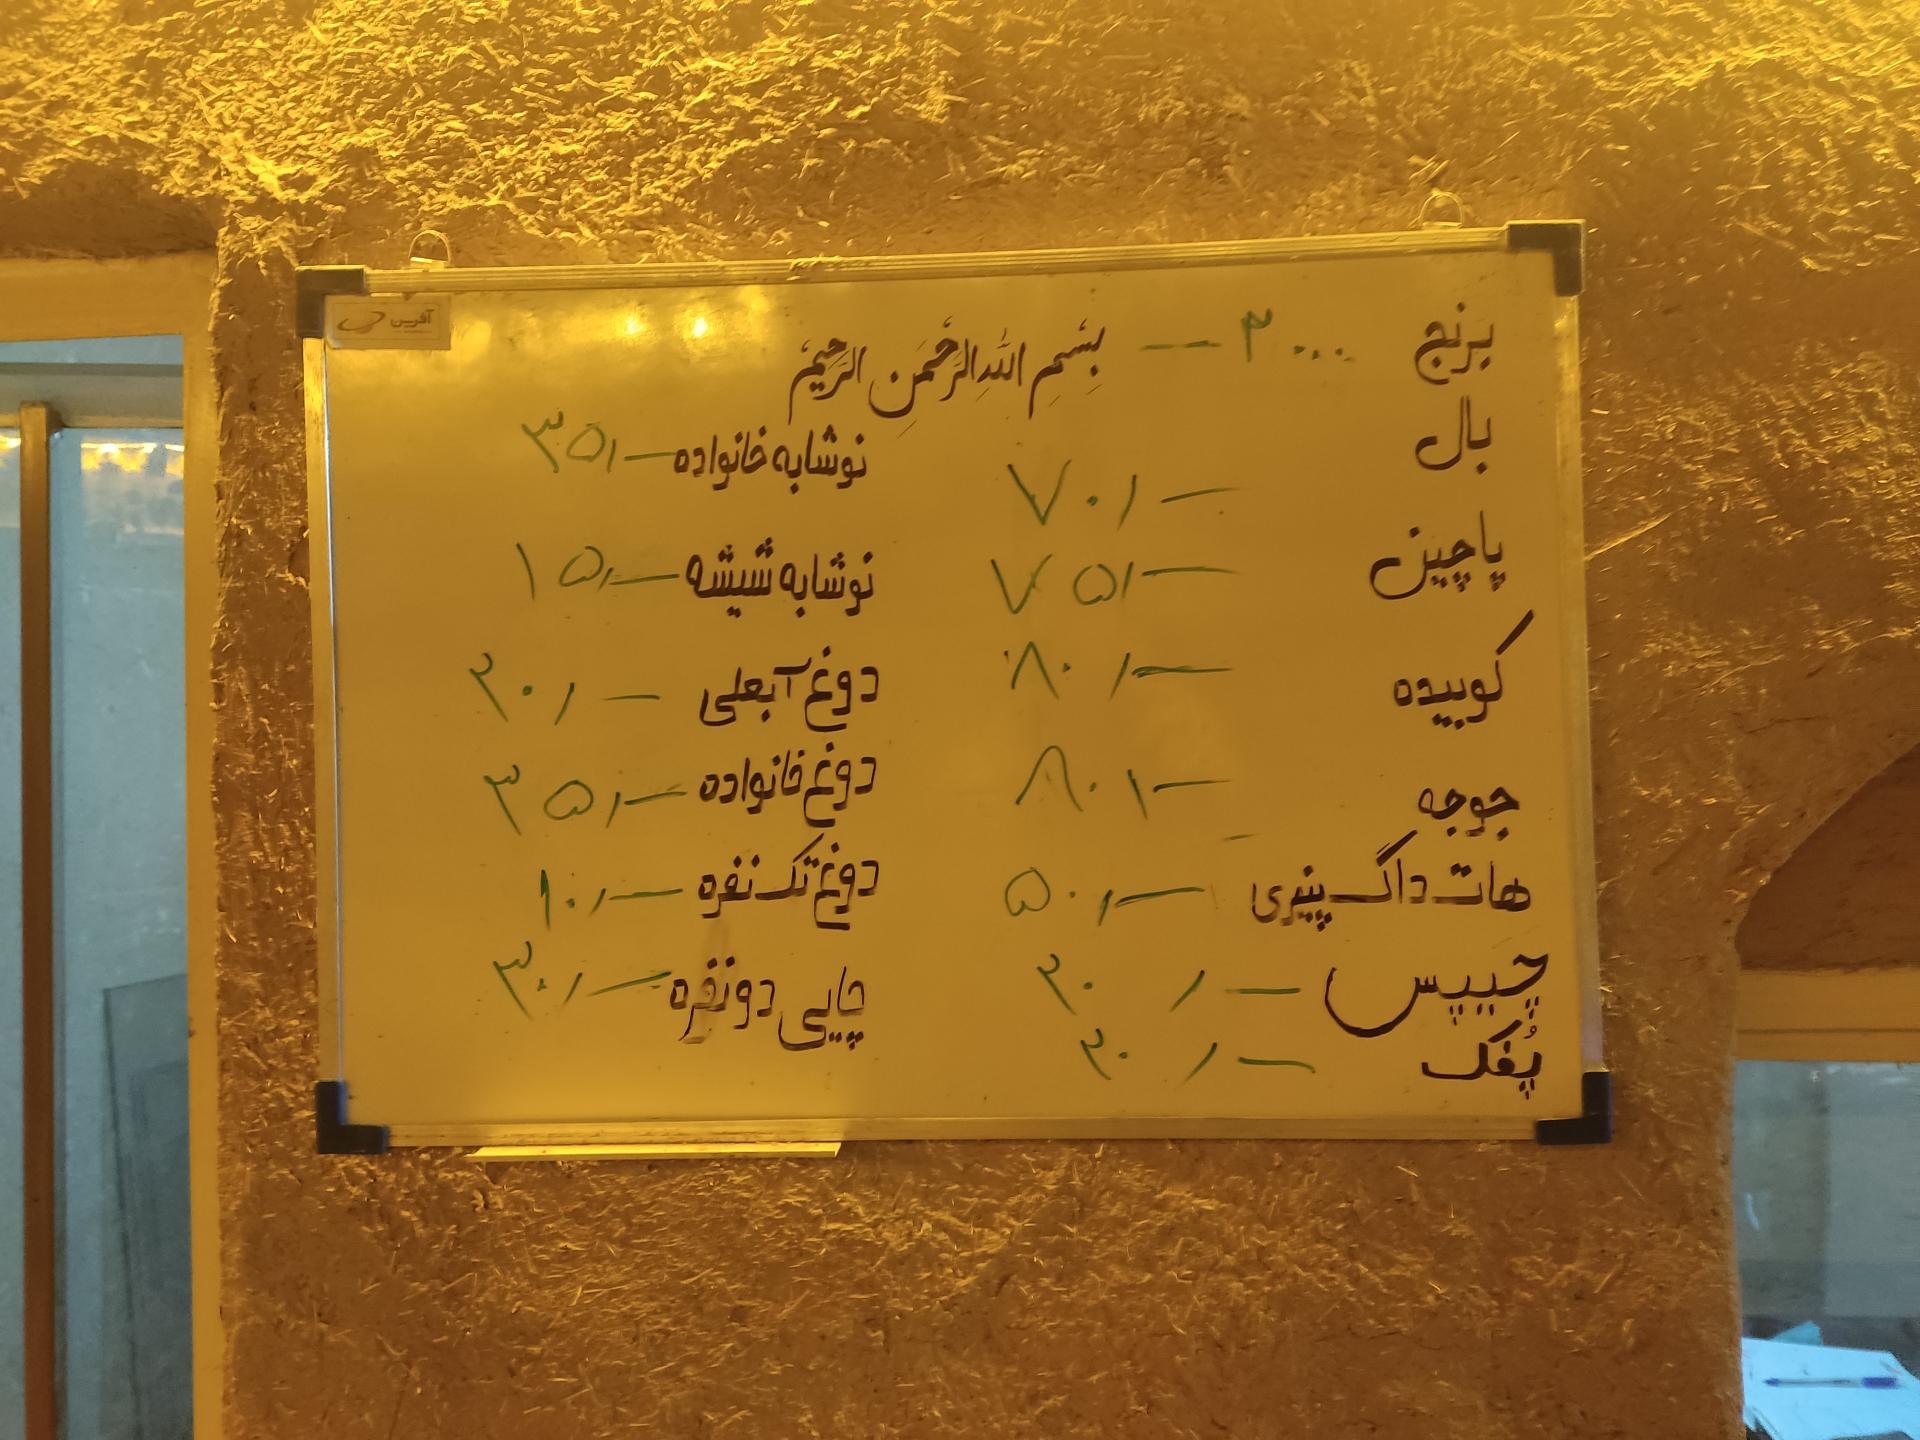 بِسْمِ اللهِ الرَّحْمَنِ الرَّحِیمْ
برنج ۳۰۰۰۰ --
بال ۷۰/-
پاچین ۷۵/-
کوبیده ۸۰/-
جوجه ۸۰/-
هات داگ پنیری ۵۰/-
چیپس ۲۰/-
پُفک ۲۰/-
نوشابه خانواده ۳۵/-
نوشابه شیشه ۱۵/-
دوغ آبعلی ۲۰/-
دوغ خانواده ۳۵/-
دوغ تک نفره ۱۰/-
چایی دو نفره ۳۰/-
آفرین